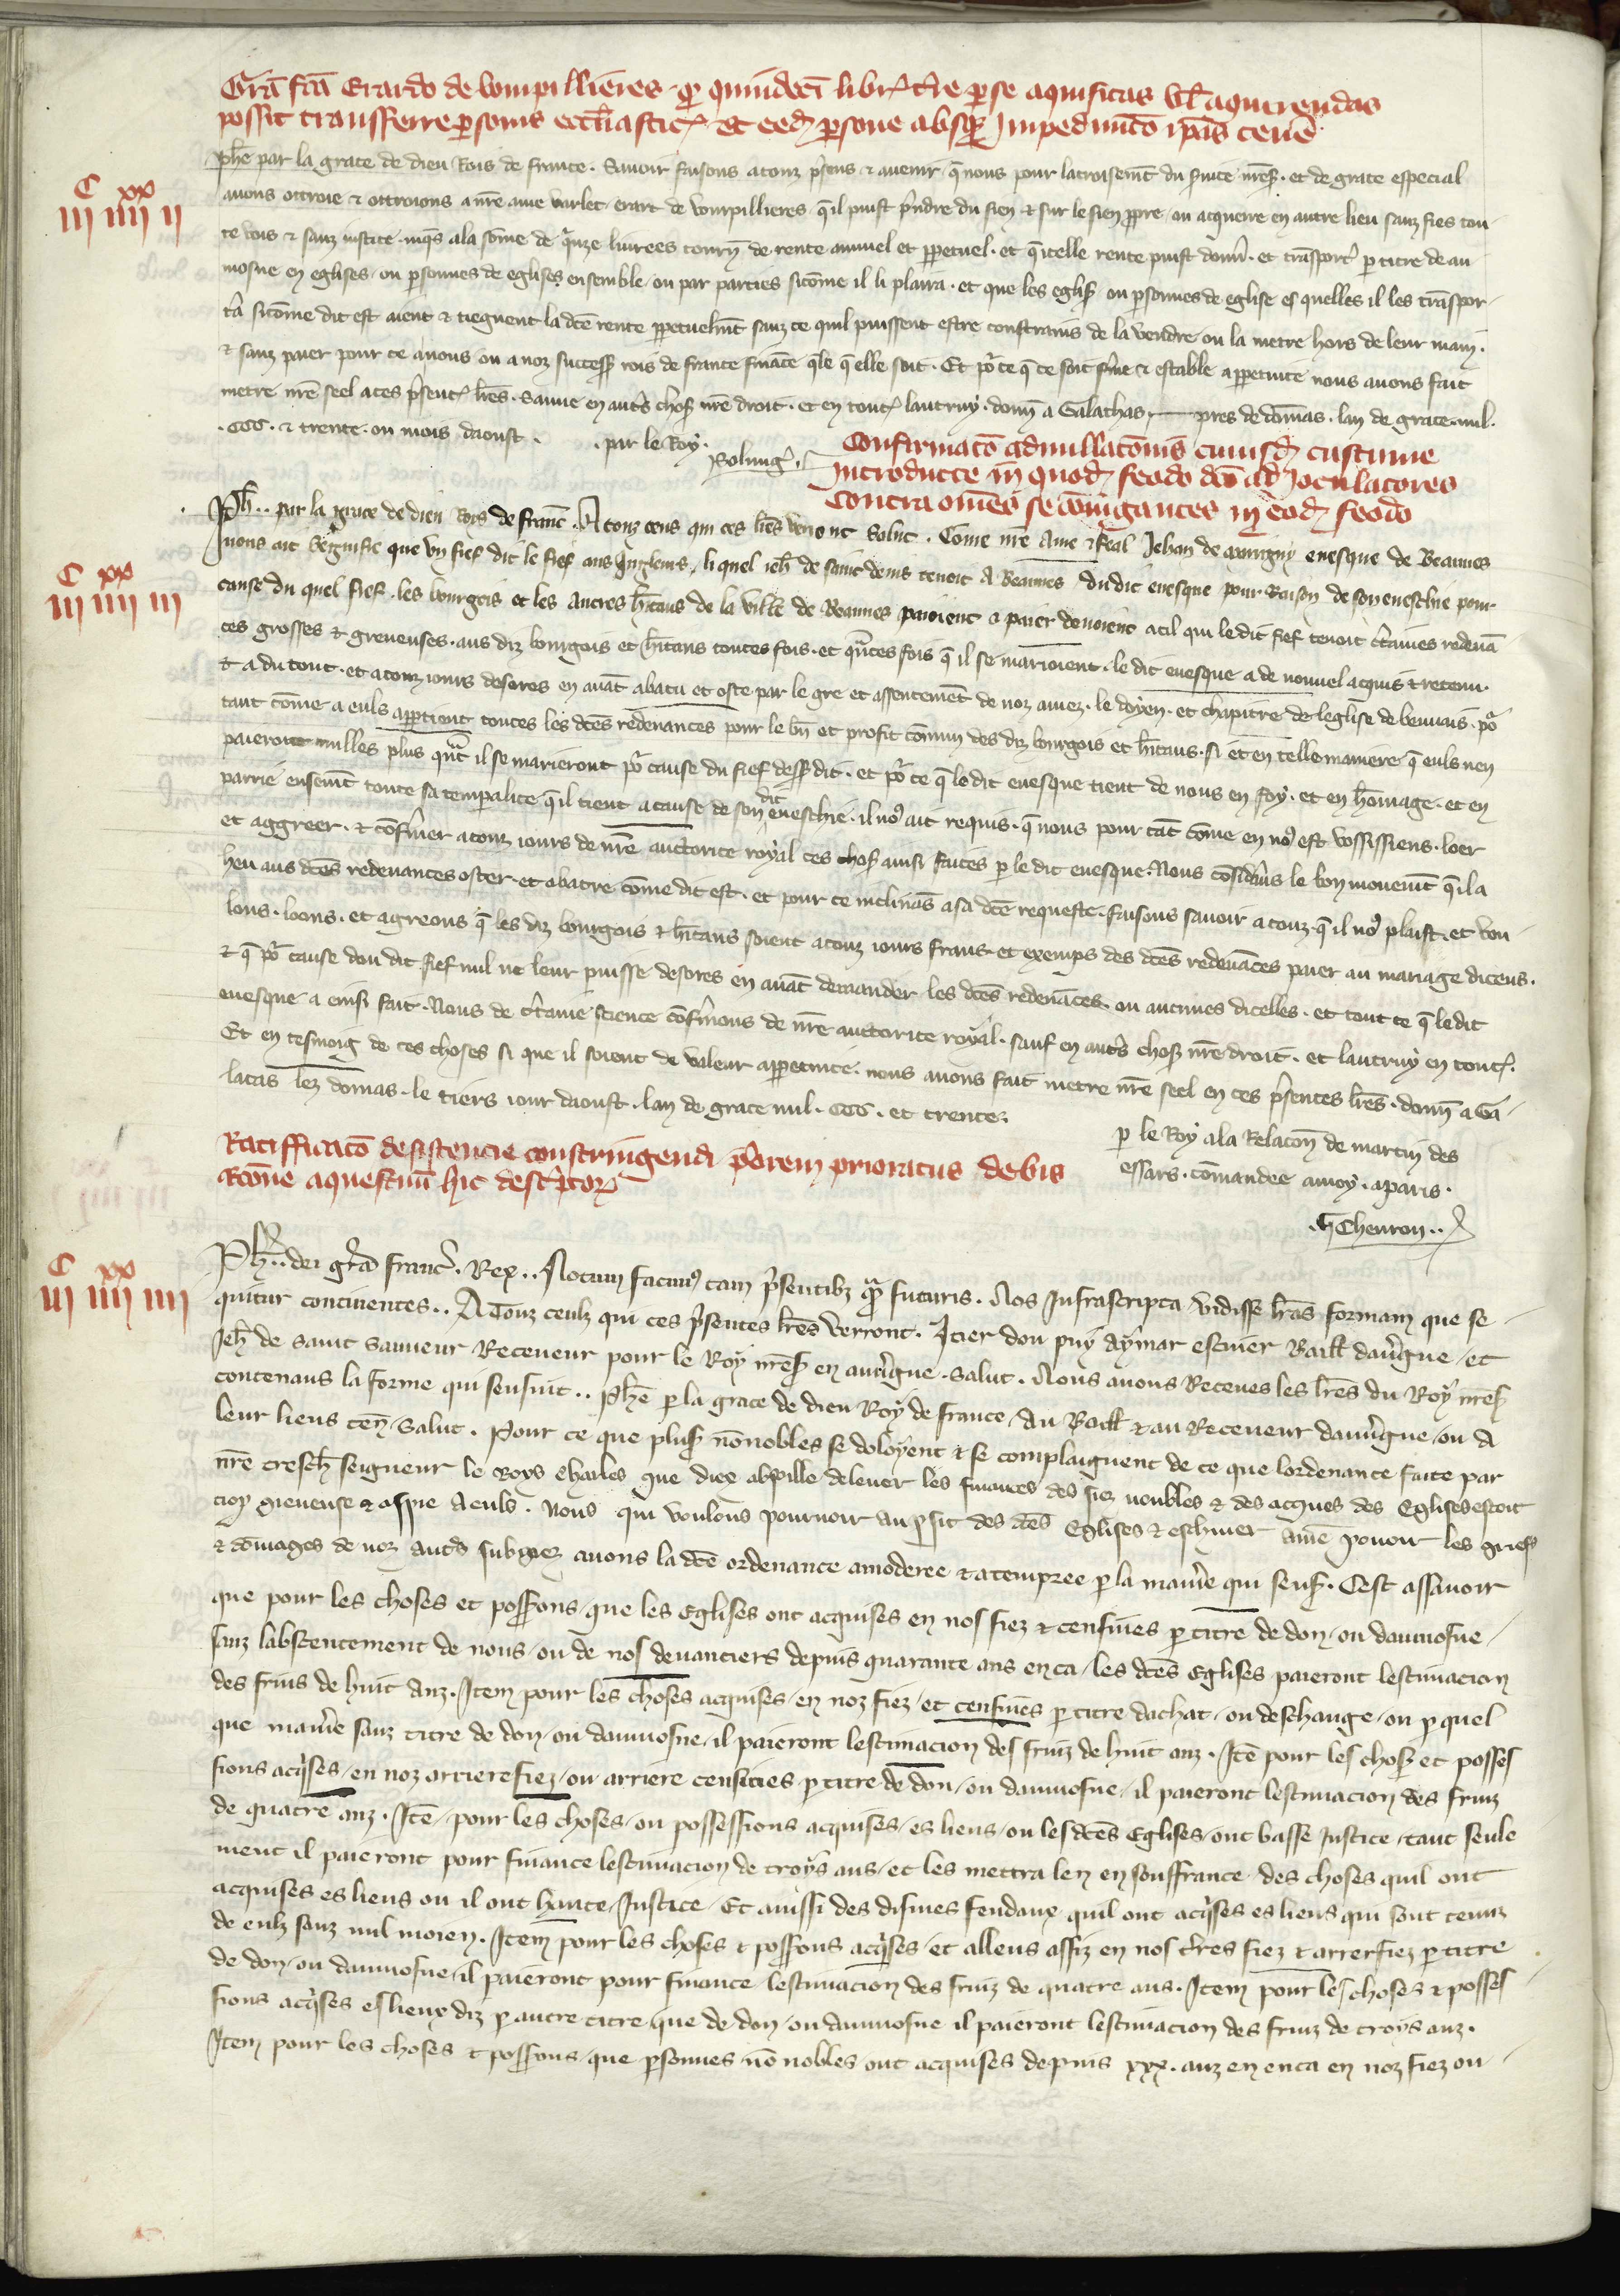 Grã fcã Erardo de Vompillieres qͥ quindecī libr̃ t̃re p se aquisitas vl̃ aquirendas
possit transferre psonis eccl̃iastic̃ et eed̃ psone absq̃ Impedimẽto ip̃as teñe
C xx
iii iiii ii
Phẽ par la grace de dieu Rois de france . Savoir faisons a touz p̃sens & avenir q̃ nous pour lacroisemt̃ du s̃uice nr̃es . et de grace especial
avons ottroie & ottroions a nr̃e ame varlet erart de vompillieres q̃ il puist p̃ndre du sien & sur le sien p̃pre ou acquerre en autre lieu sanz fies tou
te vois & sanz iustice iusq̃s a la sõme de q̃nze livrees tourñ de rente annuel et ppetuel . et q̃ icelle rente puist donñ . et trãsport̃ p titre de au
mosne en eglises ou psonnes de eglises ensemble ou par parties sicõme il li plaira . et que les eglis̃ ou psonnes de eglise es quelles il les trãspor
t̃a sicõme dit est aient & tiegnent la dc̃e rente ppetuelmt̃ sanz ce quil puissent estre constrains de la vendre ou la metre hors de leur main .
& sanz paier pour ce a nous ou a noz success̃ rois de france finãce q̃le q̃ elle soit . Et po͛ ce q̃ ce soit ferme & estable a ppetuite nous avons fait
metre nr̃e seel a ces p̃sent̃ lr̃es . Sauue en autr̃s chos̃ nr̃e droit . et en tout̃ lautruy . donñ a Galathas pres de dõmas . lan de grace mil .
. CCC . & trente . ou mois daoust . . par le Roy .
Confirmacõ Adnullacõnis cuiusd̃ custume
Introducte in quod̃ feodo dc̃o ad Joculatores
Contra om̃es se cõiugantes in eod̃ feodo
C xx
iii iiii iii
Ph̃ . . par la grace de dieu Roys de franc̃ . A touz ceus qui ces lr̃es verront Salut . Come nr̃e Ame & feal Jehan de marigny evesque de Beauues
nous ait segnifie que un fief dit le fief aus Jugleurs , li quel ieh̃ de saint denis tenoit A Beauues du dit evesque pour Raison de son eveschie pour
cause du quel fief . les bourgois et les Autres h̃itans de la ville de Beauues paioient & paier devoient a cil qui le dit fief tenoit c̃taines redevã
ces grosses & grevenses . aus diz bourgois et h̃itans toutes fois . et q̃ntes fois q̃ il se marioient . le dit evesque a de nouvel acquis & retenu
& a du tout . et a touz iours desores en avãt abatu et oste par le gre et assentemẽt de noz amez . le doyen . et chapitre de leglise de beuuais . po͛
tant cõme a euls appartient toutes les dc̃es redenances pour le bñ et profit cõmun des diz bourgois et h̃itans . si et en telle maniere q̃ euls nen
paieront nulles plus q̃nt il se marieront po͛ cause du fief dess̃dit . et po͛ ce q̃ le dit evesque tient de nous en foy . et en h̃omage . et en
parrie ensemt̃ toute sa temporalite q̃ il tient a cause de son dit eveschie . il no͛ ait requis . q̃ nous pour tãt cõme en no͛ est vossissiens . loer
et aggreer . & cõfermer a touz iours de nr̃e auctorite royal ces chos̃ ainsi faites p le dit evesque . Nous cõsid̃ans le bon movemt̃ q̃ il a
heu aus dc̃es redevances oster . et abatre cõme dit est . et pour ce inclinãs a sa dc̃e requeste . faisons savoir a touz . q̃ il no͛ plaist . et vou
lons . loons . et agreons q̃ les diz bourgois & h̃itans soient a touz iours frans et exemps des dc̃es redevãces paier au mariage diceus .
& q̃ po͛ cause dou dit fief nul ne leur puisse desores en avãt demander les dc̃es redevãces ou aucunes dicelles . et tout ce q̃ le dit
evesque a einsi fait . Nous de c̃taine science cõfermons de nr̃e auctorite royal . sauf en autr̃s chos̃ nr̃e droit . et lautruy en tout̃ .
Et en tesmoig de ces choses si que il soient de valeur appetuite . nous avons fait metre nr̃e seel en ces p̃sentes lr̃es . donñ a Ga
latas lez domas . le tiers iour daoust . lan de grace mil . CCC . et trente .
p le Roy a la Relacoñ de martin des
essars . cõmandee a moy . a paris .
. G Cheuron . .
Ratifficacõ desistencie constringendi p̃orem prioratus debis
Rõne aquestuũ hic descr̃ptor̃
C xx
iii iiii iiii
Ph̃ . . dei gr̃a franc̃ . Rex . . Notum facim͛ tam p̃sentib͛ q̃m futuris . Nos Infrascripta vidisse lr̃as formam que se
quitur continentes . . A Touz ceulz qui ces p̃sentes lr̃es verront . Itier dou puy Aymar escuier Baill̃ dauv̂gne , et
Jeh̃ de Saint Sauueur Receveur pour le Roy nr̃es̃ en auv̂gne . Salut . Nous avons Receues les lr̃es du Roy nr̃es̃
contenans la forme qui sensuit . . Phẽ p la grace de dieu Roy de france , Au Baill̃ & au Receveur dauv̂gne , ou A
leur lieus teñ . Salut . Pour ce que plus̃ nõ nobles se doloyent & se complaignent de ce que lordenance faite par
nr̃e tresch̃ seigneur le Roys Charles que diex absoille de lever les finances des fiez nenbles & des acques des Eglises estoit
trop grevense & aspre A euls . Nous qui voulons pourvoir au p̃fit des dc̃es Eglises & eschiver A nr̃e povoir les griefs
& dõmages de noz autr̃s subgiez avons la dc̃e ordenance amoderee & atempree p la manie͛ qui sens̃ . Cest assavoir
que pour les choses et poss̃ons que les Eglises ont acquises en nos fiez & censiues p titre de don , ou daumosne
sanz labsentement de nous , ou de nos devanciers depuis quarante ans en ca , les dc̃es Eglises paieront lestimacion
des fruis de huit Anz . Item pour les choses acquises , en noz fiez , et censiues p titre dachat , ou deschange , ou p quel
que manie͛ sanz titre de don , ou daumosne , il paieront lestimacion des fruiz de huit anz . Itẽ pour les chos̃ et posses
sions acq̃ses , en noz arriere fiez , ou arriere censiues p titre de don , ou daumosne , il paieront lestimacion des fruiz
de quatre anz . Itẽ , pour les choses , ou possessions acquises , es lieus , ou les dc̃es Eglises , ont basse Justice , tant seule
ment il paieront pour finance lestimacion de troys ans , et les mettra len en souffrance des choses quil ont
acquises es lieus ou il ont haute , Justice , Et aussi des dismes feudaux quil ont acq̃ses es lieus qui sont tenuz
de eulz sanz nul moien . Item pour les choses & poss̃ons acq̃ses , et alleus assiz en nos t̃res fiez & arrerfiez p titre
de don , ou daumosne , il paieront pour finance lestimacion des fruiz de quatre ans . Item pour les choses & posses
sions acq̃ses es lieux diz p autre titre que de don , ou daumosne il paieront lestimacion des fruiz de troys anz .
Item pour les choses & poss̃ons que psonnes nõ nobles ont acquises depuis xxx . anz en en ca en noz fiez ou